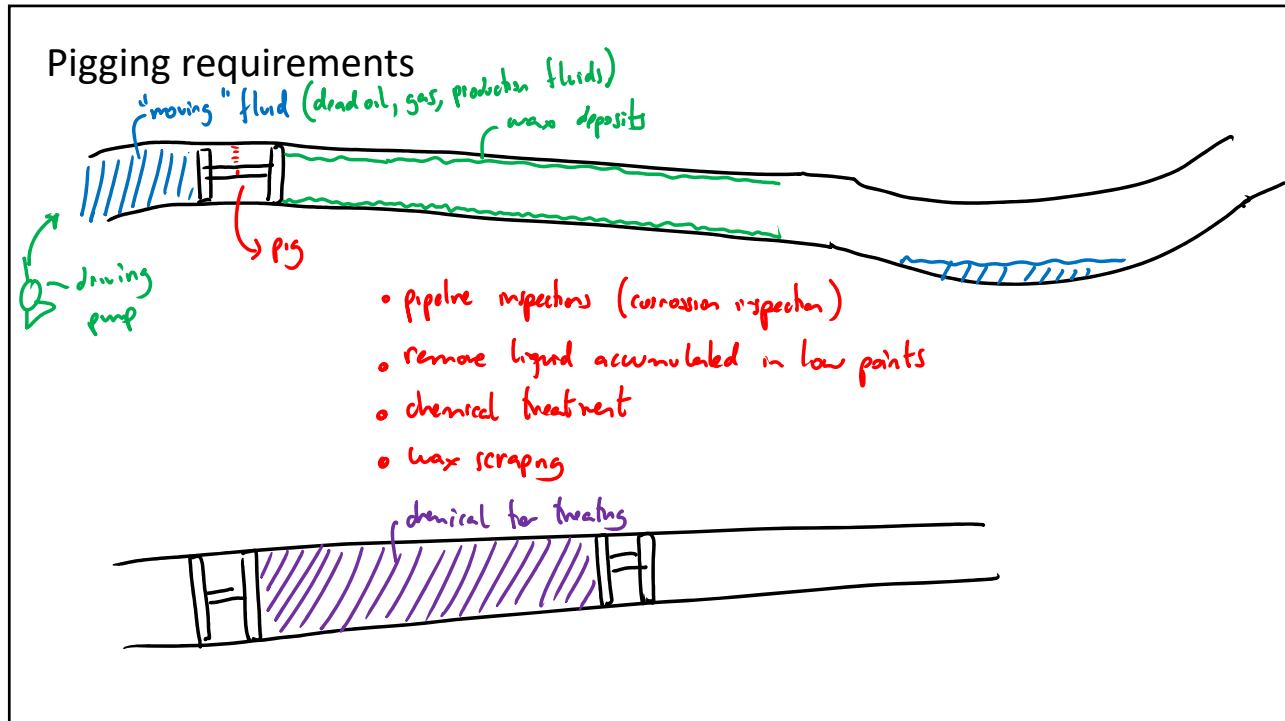 Pigging requirements
"moving" fluid (dead oil, gas, production fluids)
wax deposits
pig
driving
pump
• pipeline inspections (corrossion inspection)
• remove liquid accumulated in low points
• chemical treatment
• wax scraping
chemical for treating